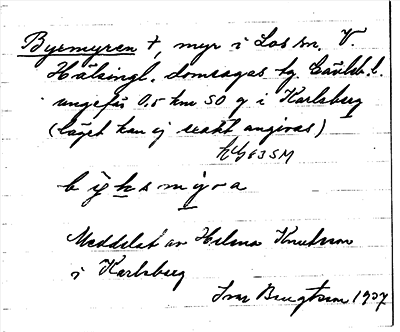 Byrmyren †, myr i Los sn. V.
Hälsingl. domsagas tg. Gävleb. l.
ungefär 0,5 km SO g i Karlsberg
(läget kan ej exakt angivas)
63 SM
Meddelat av Helena Knutsson
i Karlsberg
Ivar Bengtsson 1937